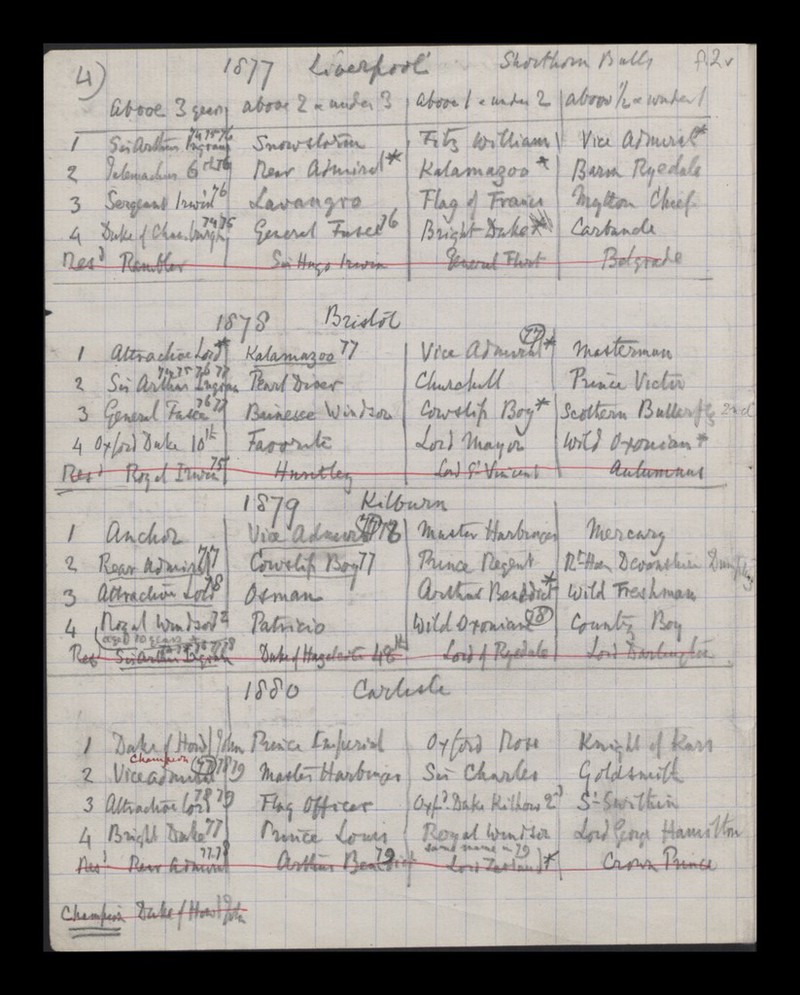 4) 1877 Liverpool Shorthorn Bulls f.2v
above 3 years above 2 & under 3 above 1 & under 2 above 1/2 & under 1
1 Sir Arthur Ingram 74 75 76 Snowstorm Fitz William Vice Admiral*
2 Telemachus 6th 76 Rear Admiral* Kalamazoo* Baron Ryedale
3 Sergeant Irwin 76 Lavengro Flag of France Mytton Chief
4 74 75 General Fusee 76 Bright Duke* Carbuncle
Resd Rambler Sir Hugo Irwin General Flirt Belgrade
1878 Bristol
1 Attractive Lord* Kalamazoo 77 Vice Admiral 77* Masterman
2 Sir Arthur Ingram 74 75 76 77 Pearl Diver Churchill Prince Victor
3 General Fusee 76 77 Windsor Cowslip Boy* Scottern Butterfly 2nd
4 Oxford Duke 10th Favourite Lord Mayor Wild Oxonian*
Resd Royal Irwin 75 Huntley Lord St Vincent Autumnus
1879 Kilburn
1 Anchor Vice Admiral 77 78 Master Harbinger Mercury
2 Rear Admiral 77 Cowslip Boy 77 Prince Regent Rt Hon Devonshire
3 Attractive Lord 78 Osman Arthur Benedict* Wild Freshman
4 Royal Windsor 72 Patricio Wild Oxonian 78 County Boy
(aged 10 years
Resd Sir Arthur Ingram 74 75 76 77 78 Duke of Hazelcote 48th Lord of Ryedale Lord Darlington
1880 Carlisle
1 Duke of Howl John Prince Imperial Oxford Rose Knight of Kars
champion
2 Vice admiral 77 78 79 Master Harbinger Sir Charles Goldsmith
3 Attractive Lord 78 79 Flag Officer Oxfd Duke 2d St Swithin
4 Bright Duke 77 Prince Louis Royal Windsor Lord George Hamilton
same name in 79
Resd Rear Admiral 77 79 Arthur Benedict 79 Lord Zetland* Crown Prince
Champion Duke of Howl John